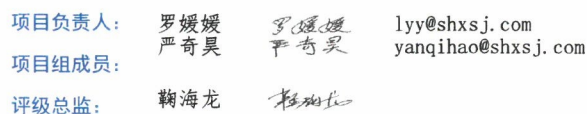 项目负责人： 罗媛媛 罗媛媛 lyy@shxsj.com
严奇昊 严奇昊 yanqihao@shxsj.com
项目组成员：
评级总监： 鞠海龙 鞠海龙